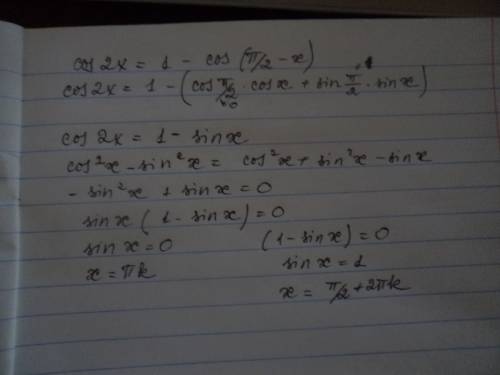 cos 2x = 1 - cos (π/2 - x)
cos 2x = 1 - (cos π/2 · cos x + sin π/2 · sin x)
cos 2x = 1 - sin x
cos²x - sin²x = cos²x + sin²x - sin x
- sin²x + sin x = 0
sin x (1 - sin x) = 0
sin x = 0 (1 - sin x) = 0
x = πk sin x = 1
x = π/2 + 2πk